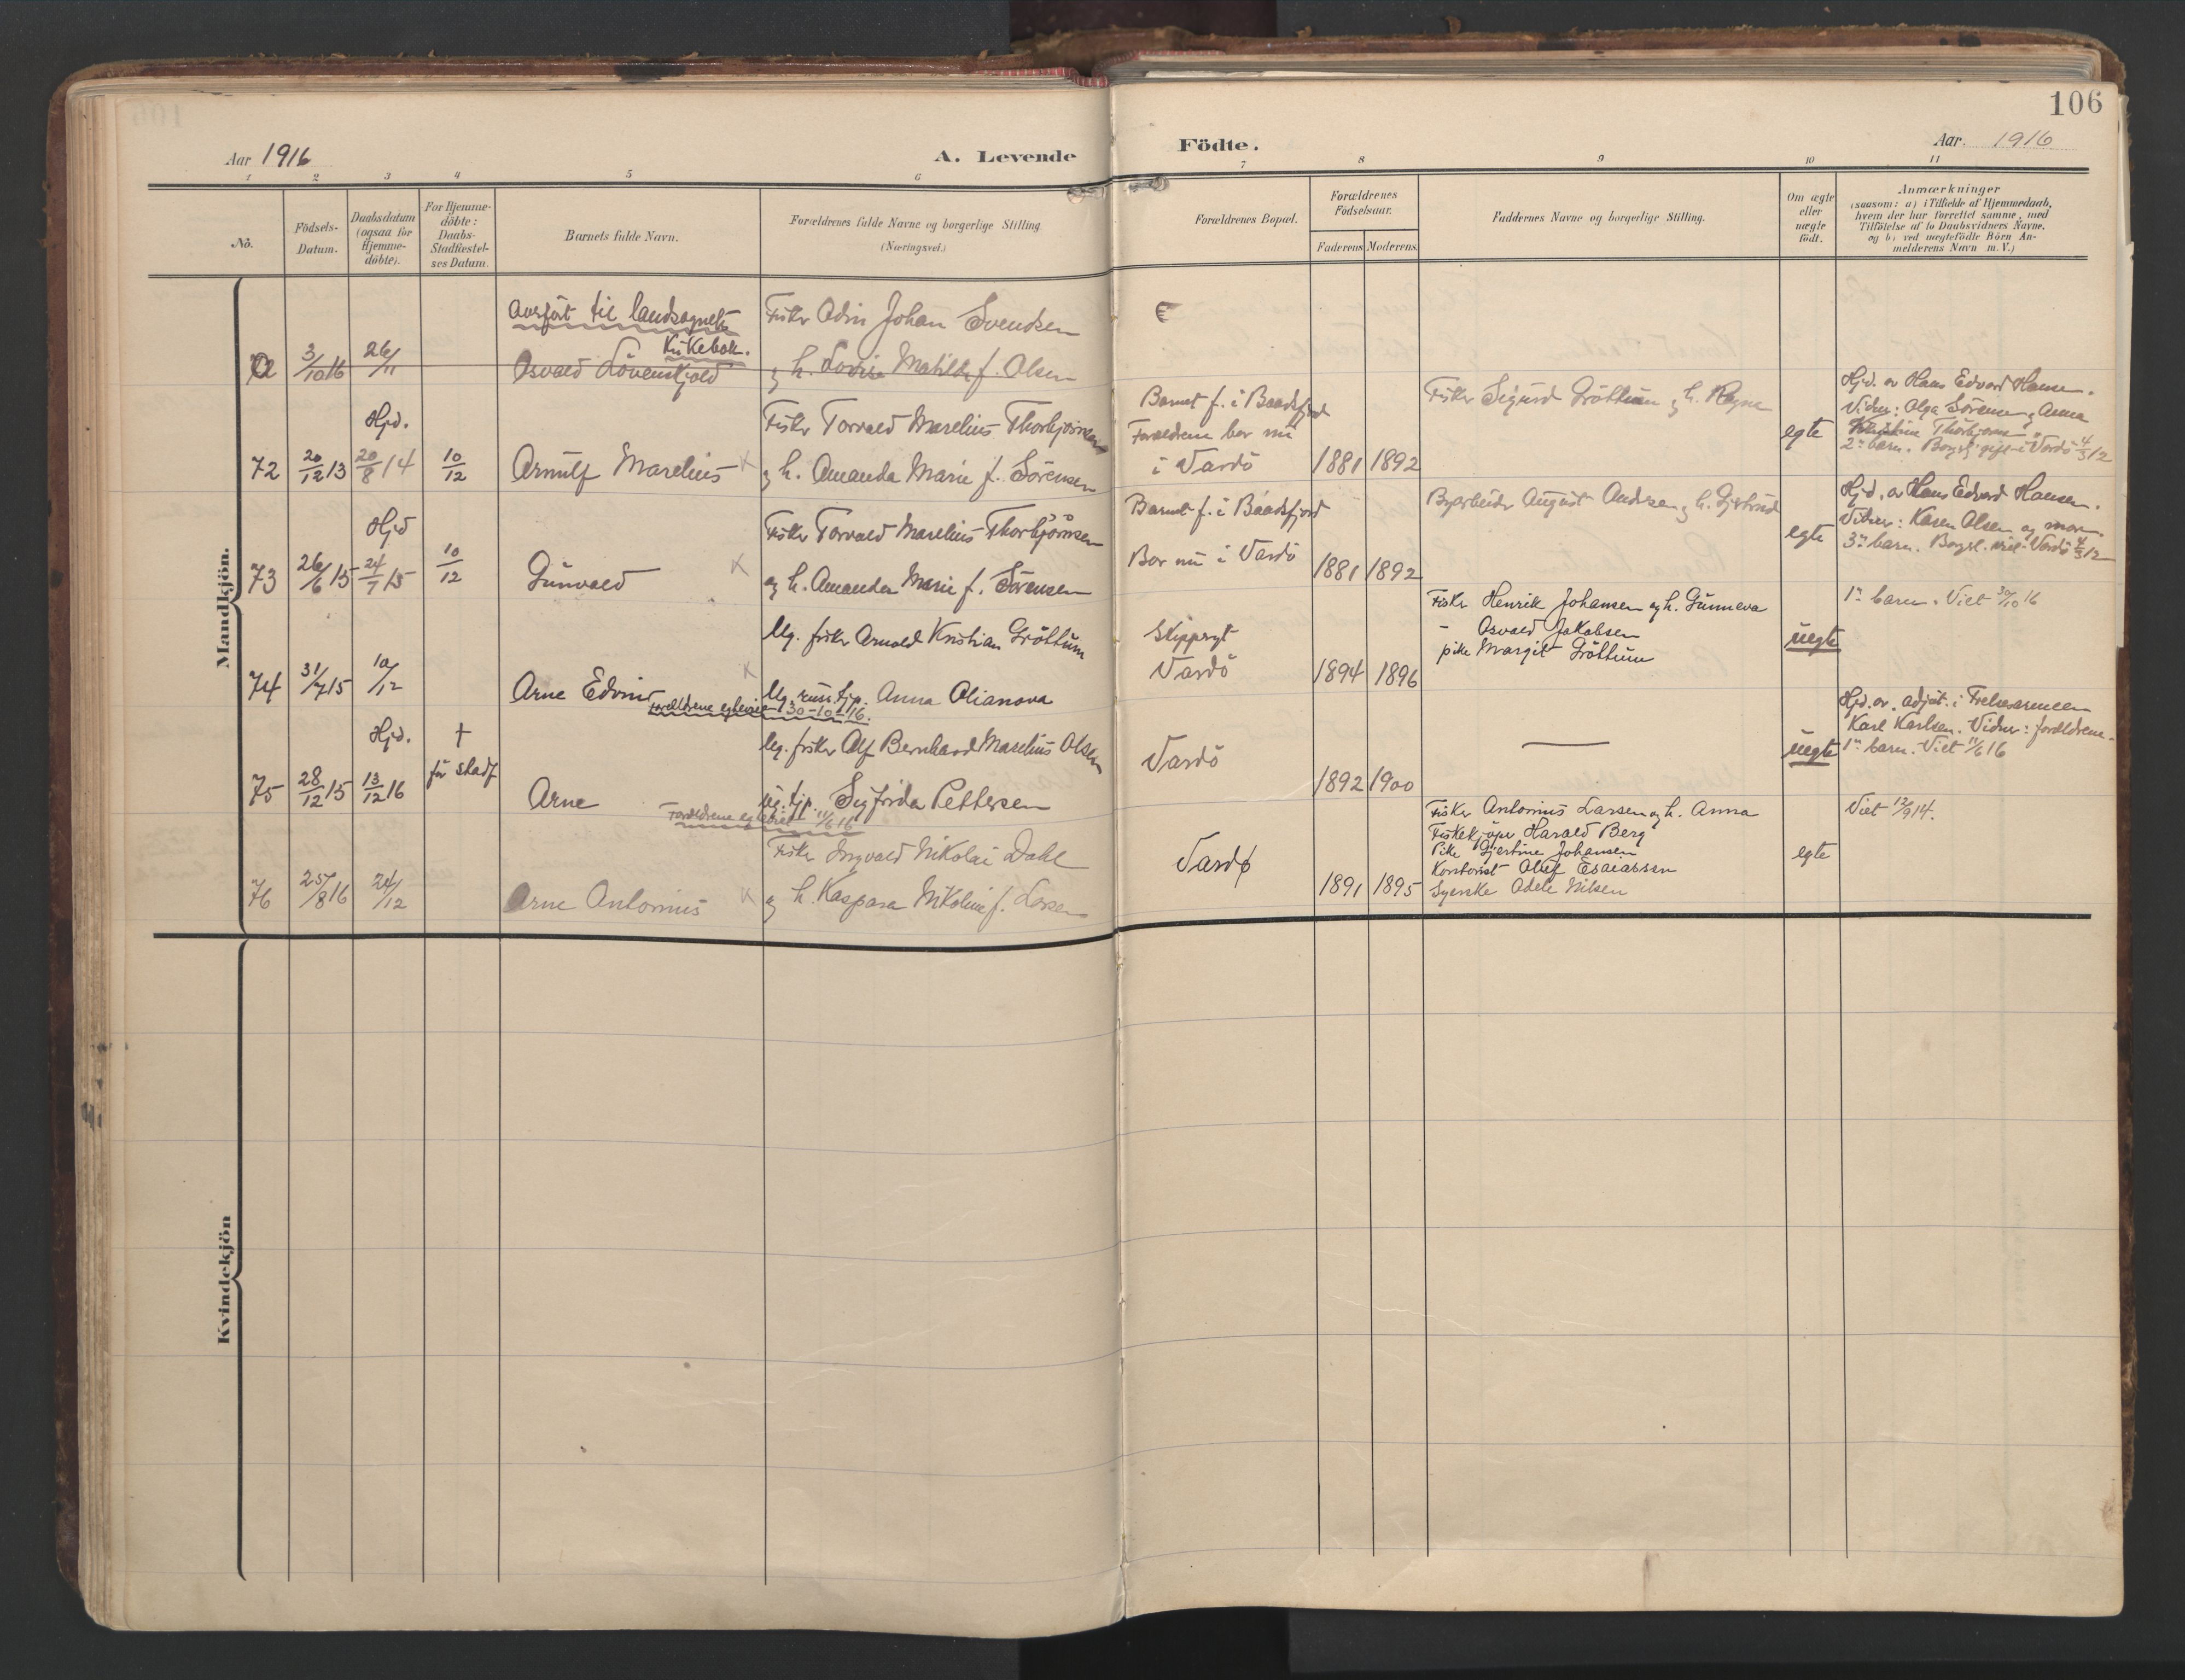 106
Aar 1916
A. Levende
Födte.
Aar. 1916
1 2 3 4 5 6 7 8 9 10 11
No.
Födsels-
Datum.
Daabsdatum
(ogsaa for
Hjemme-
döbte).
For Hjemme-
döbte:
Daabs-
Stadfæstel-
ses Datum.
Barnets fulde Navn.
Forældrenes fulde Navne og borgerlige Stilling
(Næringsvei.)
Forældrenes Bopæl.
Forældrenes
Födselsaar.
Faderens Moderens.
Faddernes Navne og borgerlige Stilling.
Om ægte
eller
uægte
födt.
Anmærkninger
(saasom: a) i Tilfælde af Hjemmedaab,
hvem der har forrettet samme, med
Tilföielse af to Daabsvidners Navne,
og b) ved uægtefödte Börn An-
melderens Navn m. V.)
Mandkjön.
Avfört til landsognets
Kirkebok.
Fisker Odin Johan Svendsen
72 3/10 16 26/11 Osvald Lövenskjold
og h. Lovise Matilde f. Olsen
Hjd.
72 20/12 13 20/8 14 10/12 Arnulf Marelius
Fisker Torvald Marelius Thorbjörnsen
og h. Amanda Marie f. Sörensen
Barnet f. i Baadsfjord
Forældrene bor nu
i Vardö
1881 1892
Fisker Sigurd Gröttum og h. Ragna
egte
Hjd. av Hans Edvard Hansen.
Vidner: Olga Sörensen og Anna
Thorbjörnsen
2n barn. Borgerl. gift i Vardö 4/3 12
Hjd
73 26/6 15 24/7 15 10/12 Gunvald
Fisker Torvald Marelius Thorbjörnsen
og h. Amanda Marie f. Sörensen
Barnet f. i Baadsfjord
Bor nu i Vardö
1881 1892
Byarbeider August Andersen og h. Gjertrud
egte
Hjd. av Hans Edvard Hansen.
Vidner: Karen Olsen og mor.
3n barn. Borgl. viet i Vardö 4/3 12
74 31/7 15 10/12 Arne Edvin
Ug. fisker Arnold Kristian Gröttum
Ug. russ. tjp. Anna Olianova
Forældrene egteviet 30-10-16.
Skippagt
Vardö
1894 1896
Fisker Henrik Johansen og h. Gunneva
- Osvald Jakobsen
pike Margit Gröttum
uegte
1n barn. Viet 30/10 16
Hjd. †
för stadf
75 28/12 15 13/12 16 Arne
Ug. fisker Alf Bernhard Marelius Olsen
Ug. tjp. Sigfrida Pettersen
Forældrene egteviet 11/6 16
Vardö
1892 1900
uegte
Hjd. av adjut. i Frelsesarmeen
Karl Karlsen. Vidner: foreldrene.
1n barn. Viet 11/6 16
76 25/8 16 24/12 Arne Antonius
Fisker Ingvald Nikolai Dahl
og h. Kaspara Nikoline f. Larsen
Vardø
1891 1895
Fisker Antonius Larsen og h. Anna
Fiskekjöper Harald Berg
Pike Gjertine Johansen
Kontorist Olaf Esaiassen
Syerske Adele Nilsen
egte
Viet 12/9 14.
Kvindekjön